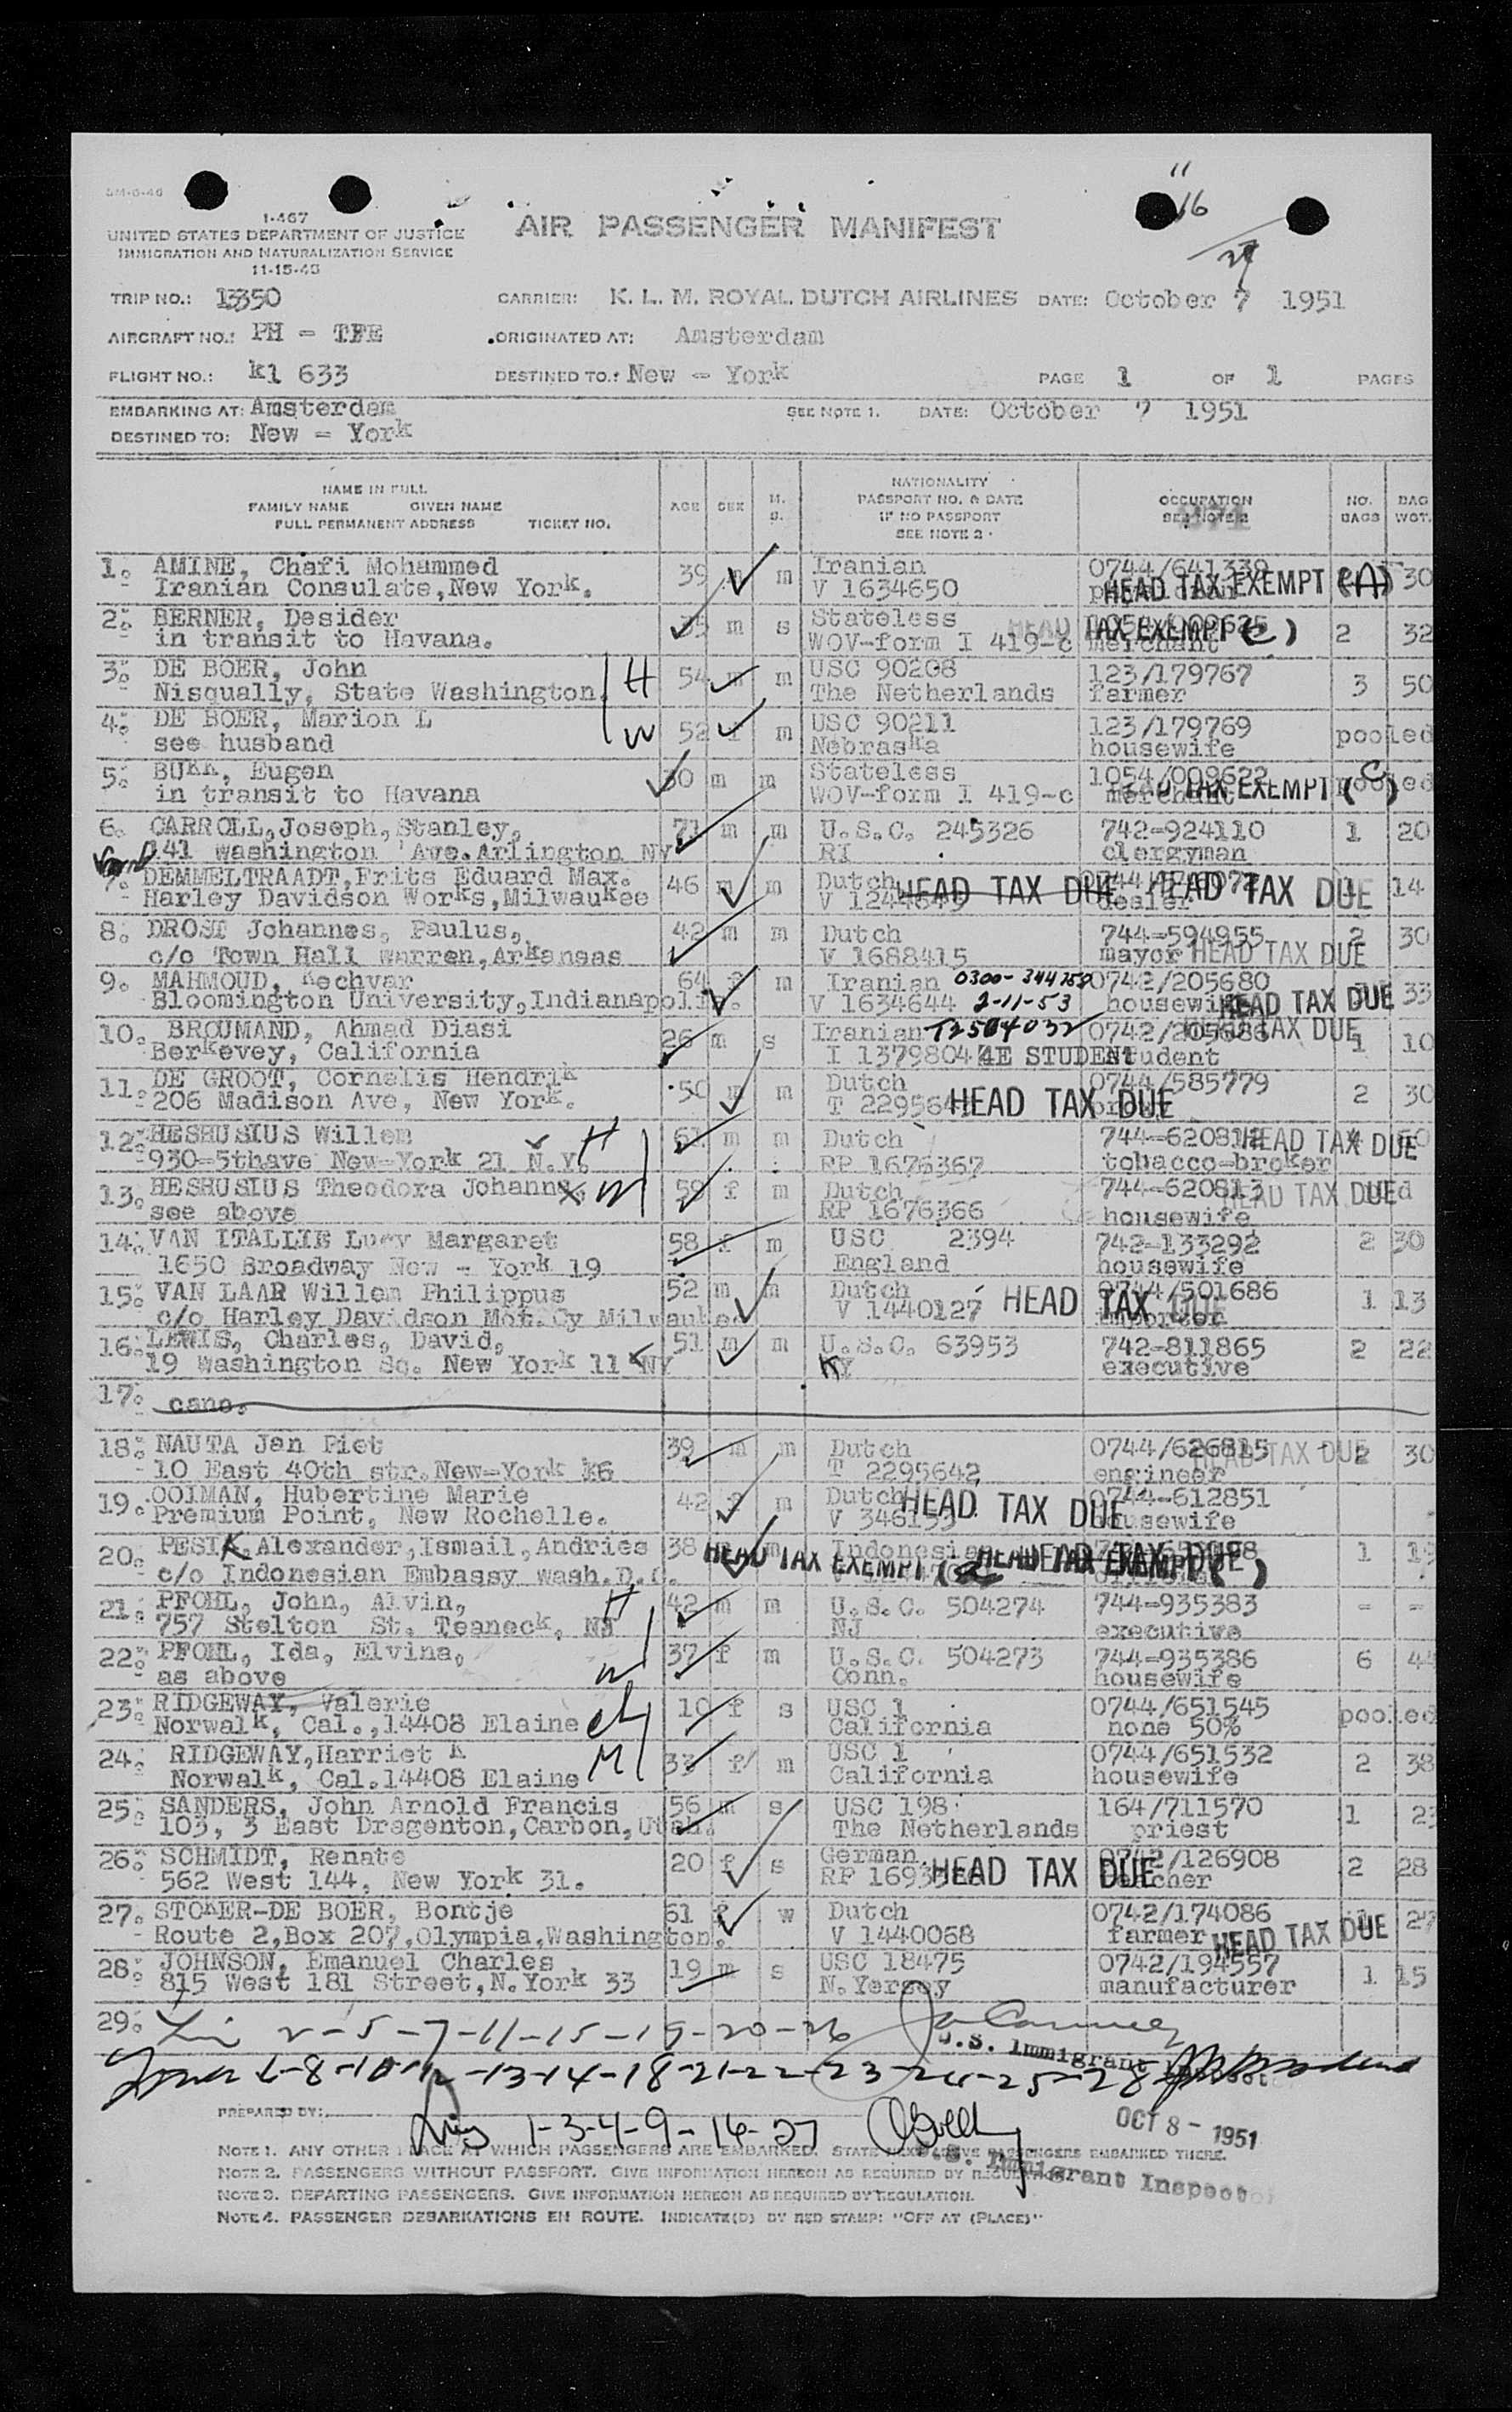 I-467
UNITED STATES DEPARTMENT OF JUSTICE
IMMIGRATION AND NATURALIZATION SERVICE
AIR PASSENGER MANIFEST
16
TRIP NO.: 13350 CARRIER: K. L. M. ROYAL DUTCH AIRLINES DATE: October 7 1951
AIRCRAFT NO.: PH - TFE ORIGINATED AT: Amsterdam
FLIGHT NO.: kl 633 DESTINED TO.: New - York PAGE 1 OF 1 PAGES
EMBARKING AT: Amsterdam SEE NOTE 1. DATE: October 7 1951
DESTINED TO: New - York
NAME IN FULL
FAMILY NAME GIVEN NAME
FULL PERMANENT ADDRESS TICKET NO.
AGE SEX M. S.
NATIONALITY
PASSPORT NO. & DATE
IF NO PASSPORT
SEE NOTE 2
OCCUPATION
SEE NOTE 2
NO. BAGS
BAG WGT.
1. AMINE, Chafi Mohammed 39 m m Iranian 0744/641339 30
Iranian Consulate, New York. V 1634650 HEAD TAX EXEMPT (A)
2. BERNER, Desider m s Stateless 2 32
in transit to Havana. WOV-form I 419-c merchant TAX EXEMPT (C)
3. DE BOER, John H 54 m m USC 90208 123/179767 3 50
Nisqually, State Washington. The Netherlands farmer
4. DE BOER, Marion L W 52 f m USC 90211 123/179769 pooled
see husband Nebraska housewife
5. BUKK, Eugen 30 m m Stateless 1054/009622 pooled
in transit to Havana WOV-form I 419-c merchant TAX EXEMPT (C)
6. CARROLL, Joseph, Stanley, 71 m m U.S.C. 245326 742-924110 1 20
141 Washington Ave. Arlington NY RI clergyman
7. DEMMELTRAADT, Frits Eduard Max. 46 m m Dutch HEAD TAX DUE HEAD TAX DUE 14
Harley Davidson Works, Milwaukee dealer
8. DROST Johannes, Paulus, 42 m m Dutch 744-594955 2 30
c/o Town Hall Warren, Arkansas V 1688415 mayor HEAD TAX DUE
9. MAHMOUD, Kechvar 64 f m Iranian 0300-344250 0742/205680 33
Bloomington University, Indianapolis. V 1634644 2-11-53 housewife HEAD TAX DUE
10. BROUMAND, Ahmad Diasi 26 m s Iranian T2504032 0742/205686 TAX DUE 1 10
Berkevey, California I 1379804 4E STUDENT student
11. DE GROOT, Cornelis Hendrik 50 m m Dutch 0744/585779 2 30
206 Madison Ave, New York. HEAD TAX DUE
12. HESHUSIUS Willem H 61 m m Dutch 744-620812 HEAD TAX DUE
930-5thave New-York 21 N.Y. RP 1676367 tobacco-broker
13. HESHUSIUS Theodora Johanna, W 59 f m Dutch 744-620813 HEAD TAX DUE
see above RP 1676366 housewife
14. VAN ITALLIE Lucy Margaret 58 f m USC 2394 742-133292 2 30
1650 Broadway New - York 19 England housewife
15. VAN LAAR Willem Philippus 52 m m Dutch 0744/501686 1 13
c/o Harley Davidson Mot.Cy Milwaukee V 1440127 HEAD TAX DUE importer
16. LEWIS, Charles, David, 51 m m U.S.C. 63953 742-811865 2 22
19 Washington Sq. New York 11 NY KY executive
17. canc.
18. NAUTA Jan Piet 39 m m Dutch 0744/626815 HEAD TAX DUE 2 30
10 East 40th str. New-York 16 T 2295642 engineer
19. OOIMAN, Hubertine Marie 42 f m Dutch HEAD TAX DUE 0744-612851
Premium Point, New Rochelle. housewife
20. PESIK, Alexander, Ismail, Andries 38 m Indonesian 1
c/o Indonesian Embassy Wash. D.C. HEAD TAX EXEMPT HEAD TAX EXEMPT
21. PFOHL, John, Alvin, H 42 m m U.S.C. 504274 744-935383 - -
757 Stelton St. Teaneck, NJ NJ executive
22. PFOHL, Ida, Elvina, W 37 f m U.S.C. 504273 744-935386 6 44
as above Conn. housewife
23. RIDGEWAY, Valerie ch 10 f s USC 1 0744/651545 pooled
Norwalk, Cal., 14408 Elaine California none 50%
24. RIDGEWAY, Harriet K M 33 f m USC 1 0744/651532 2 38
Norwalk, Cal. 14408 Elaine California housewife
25. SANDERS, John Arnold Francis 56 m s USC 198 164/711570 1
103, 3 East Dragenton, Carbon, Utah. The Netherlands priest
26. SCHMIDT, Renate 20 f s German 0742/126908 2 28
562 West 144, New York 31. HEAD TAX DUE teacher
27. STOKER-DE BOER, Bontje 61 f w Dutch 0742/174086
Route 2, Box 207, Olympia, Washington. V 1440068 farmer HEAD TAX DUE
28. JOHNSON, Emanuel Charles 19 m s USC 18475 0742/194557 1 15
815 West 181 Street, N.York 33 N.Yersey manufacturer
29. 2-5-7-11-15-19-20-26
U.S. Immigrant
8-10-12-13-14-18-21-22-23-24-25-28
PREPARED BY: 1-3-4-9-16-27
OCT 8 - 1951
U.S. Immigrant Inspector
NOTE 1. ANY OTHER PLACE AT WHICH PASSENGERS ARE EMBARKED. PASSENGERS EMBARKED THERE.
NOTE 2. PASSENGERS WITHOUT PASSPORT. GIVE INFORMATION HEREON AS REQUIRED BY REGULATION.
NOTE 3. DEPARTING PASSENGERS. GIVE INFORMATION HEREON AS REQUIRED BY REGULATION.
NOTE 4. PASSENGER DEBARKATIONS EN ROUTE. INDICATE(D) BY RED STAMP: "OFF AT (PLACE)"